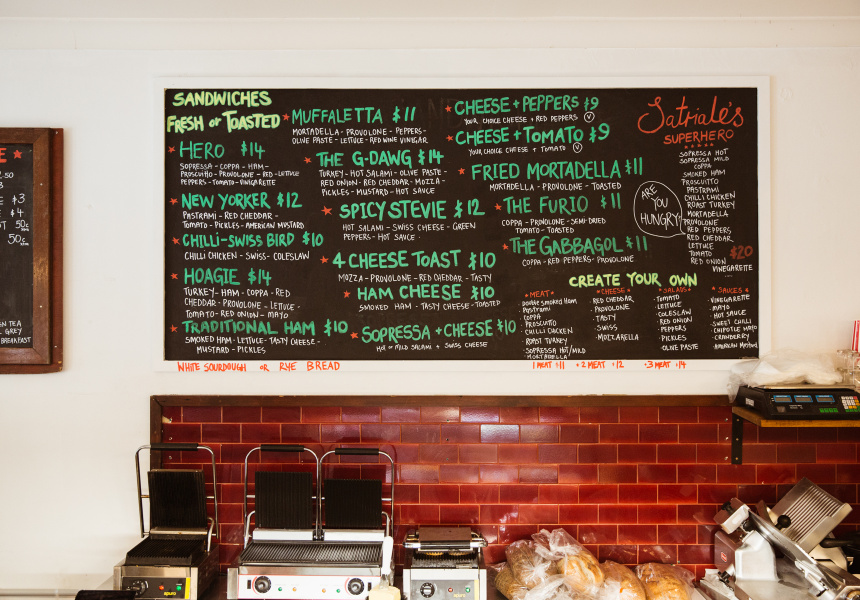 SANDWICHES
FRESH or TOASTED
HERO $14
SOPRESSA - COPPA - HAM -
PROSCUITTO - PROVOLONE - RED - LETTUCE
PEPPERS - TOMATO - VINIGARETTE
NEW YORKER $12
PASTRAMI - RED CHEDDAR -
TOMATO - PICKLES - AMERICAN MUSTARD
CHILLI-SWISS BIRD $10
CHILLI CHICKEN - SWISS - COLESLAW
HOAGIE $14
TURKEY - HAM - COPPA - RED
CHEDDAR - PROVOLONE - LETTUCE -
TOMATO - RED ONION - MAYO
TRADITIONAL HAM $10
SMOKED HAM - LETTUCE - TASTY CHEESE -
MUSTARD - PICKLES
MUFFALETTA $11
MORTADELLA - PROVOLONE - PEPPERS -
OLIVE PASTE - LETTUCE - RED WINE VINEGAR
THE G-DAWG $14
TURKEY - HOT SALAMI - OLIVE PASTE -
RED ONION - RED CHEDDAR - MOZZA -
PICKLES - MUSTARD - HOT SAUCE
SPICY STEVIE $12
HOT SALAMI - SWISS CHEESE - GREEN
PEPPERS - HOT SAUCE
4 CHEESE TOAST $10
MOZZA - PROVOLONE - RED CHEDDAR - TASTY
HAM CHEESE $10
SMOKED HAM - TASTY CHEESE - TOASTED
SOPRESSA + CHEESE $10
HOT or MILD SALAMI + SWISS CHEESE
CHEESE + PEPPERS $9
YOUR CHOICE CHEESE + RED PEPPERS V
CHEESE + TOMATO $9
YOUR CHOICE CHEESE + TOMATO V
FRIED MORTADELLA $11
MORTADELLA - PROVOLONE - TOASTED
THE FURIO $11
COPPA - PROVOLONE - SEMI-DRIED
TOMATO - TOASTED
THE GABBAGOL $11
COPPA - RED PEPPERS - PROVOLONE
Satriale's
SUPERHERO
SOPRESSA HOT
SOPRESSA MILD
COPPA
SMOKED HAM
PROSCUITTO
PASTRAMI
CHILLI CHICKEN
ROAST TURKEY
MORTADELLA
PROVOLONE
RED PEPPERS
RED CHEDDAR
LETTUCE
TOMATO
RED ONION
VINEGARETTE
$20
ARE
YOU
HUNGRY?
CREATE YOUR OWN
MEAT
DOUBLE SMOKED HAM
PASTRAMI
COPPA
PROSCUITTO
CHILLI CHICKEN
ROAST TURKEY
SOPRESSA HOT/MILD
MORTADELLA
CHEESE
RED CHEDDAR
PROVOLONE
TASTY
SWISS
MOZZARELLA
SALADS
TOMATO
LETTUCE
COLESLAW
RED ONION
PEPPERS
PICKLES
OLIVE PASTE
SAUCES
VINEGARETTE
MAYO
HOT SAUCE
SWEET CHILLI
CHIPOTLE MAYO
CRANBERRY
AMERICAN MUSTARD
WHITE SOURDOUGH OR RYE BREAD
1 MEAT $11 + 2 MEAT $12 + 3 MEAT $14
E
.50
$3
$4
50c
50c
EN TEA
GREY
BREAKFAST